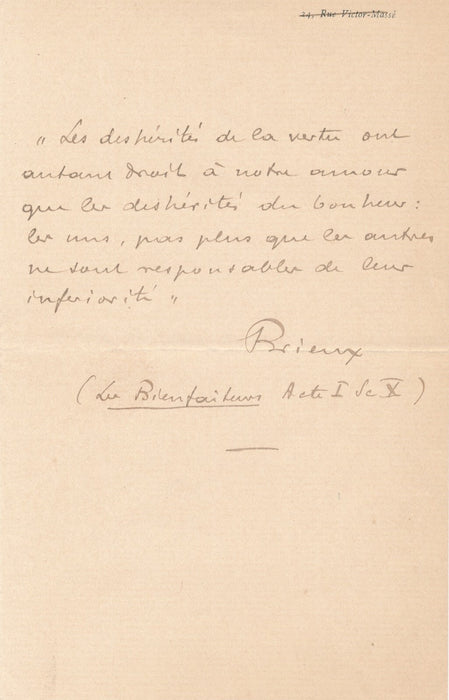 24, Rue Victor-Massé
" Les deshérités de la vertu ont
autant droit à notre amour
que les deshérités du bonheur :
les uns, pas plus que les autres
ne sont responsables de leur
infériorité "
Brieux
( Les Bienfaiteurs Acte I Sc X )